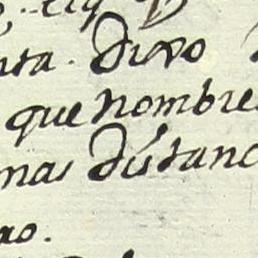 nta. Divo
que nombre
mas distanc
ao.